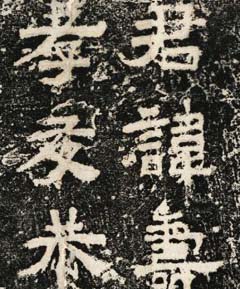 君諱壽
孝友恭